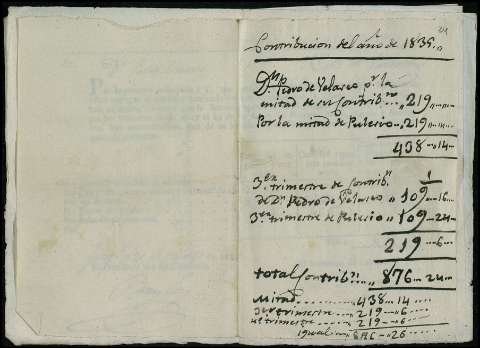 Contribucion del año de 1835"
Dn. Pedro de Velasco pr. la
mitad de su Contrib.on ... "219"......
Por la mitad de Pelecio..."219"......
438-14-
3er. trimestre de Contrib.n
de Dn. Pedro de Velasco " 109-16-
3er. trimestre de Pelecio " 109-24-
219-6-
total Contrib.n .." 876-24-
Mitad ........... "438-14.....
3er trimestre ... "219"6.....
4º trimestre ... "219"6.....
igual ... "876-26.....